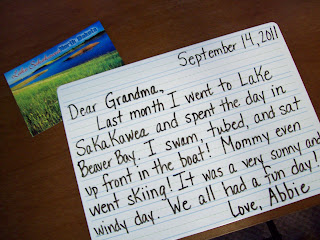 North Dakota
September 14, 2011
Dear Grandma,
Last month I went to Lake
Sakakawea and spent the day in
Beaver Bay. I swam, tubed, and sat
up front in the boat! Mommy even
went skiing! It was a very sunny and
windy day. We all had a fun day!
Love, Abbie